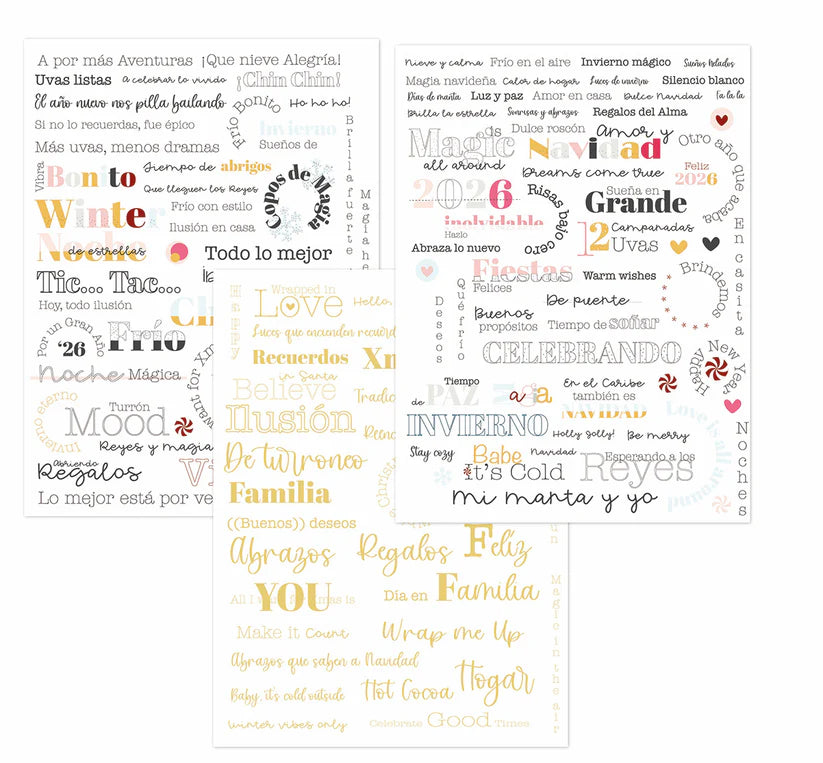 A por más Aventuras ¡Que nieve Alegría!
Uvas listas A celebrar lo vivido ¡Chin Chin!
El año nuevo nos pilla bailando Frío Bonito Ho ho ho!
Si no lo recuerdas, fue épico Invierno
Más uvas, menos dramas Sueños de
Brilla fuerte
Vibra Bonito Tiempo de abrigos
Que lleguen los Reyes
Winter Frío con estilo
Copos de Magia
Ilusión en casa
Noche de estrellas
Todo lo mejor
Tic... Tac...
Hoy, todo ilusión
Por un Gran Año '26
Frío
Noche Mágica
want for
Invierno eterno
Turrón
Mood
Reyes y magia
Abriendo
Regalos
Lo mejor está por
Nieve y calma Frío en el aire Invierno mágico Sueños helados
Magia navideña Calor de hogar Luces de invierno Silencio blanco
Días de manta Luz y paz Amor en casa Dulce Navidad Fa la la
Brilla la estrella Sonrisas y abrazos Regalos del Alma
Magic is all around
Dulce roscón Amor y
Navidad
Otro año que acaba
Dreams come true
Feliz 2026
2026 inolvidable
Risas bajo cero
Sueña en Grande
Hazlo
12 Campanadas
Uvas
Abraza lo nuevo
En casita
Fiestas
Felices
Warm wishes
Brindemos
Deseos
Qué frío
De puente
Buenos propósitos
Tiempo de soñar
CELEBRANDO
Happy New Year
Tiempo de PAZ
Magia
En el Caribe también es NAVIDAD
INVIERNO
Holly Jolly! Be merry
Love is all around
Noches
Stay cozy
Babe It's Cold
Navidad
Esperando a los Reyes
Mi manta y yo
HAPPY
Wrapped in
Love
Hello,
Luces que encienden
Recuerdos
in Santa
Believe
Ilusión
De turroneo
Familia
((Buenos)) deseos
Abrazos Regalos Felíz
All I want for Xmas is YOU
Día en Familia
Make it Count Wrap me Up
Abrazos que saben a Navidad
Baby, it's cold outside Hot Cocoa Hogar
Winter vibes only Celebrate Good Times
Magic in the air